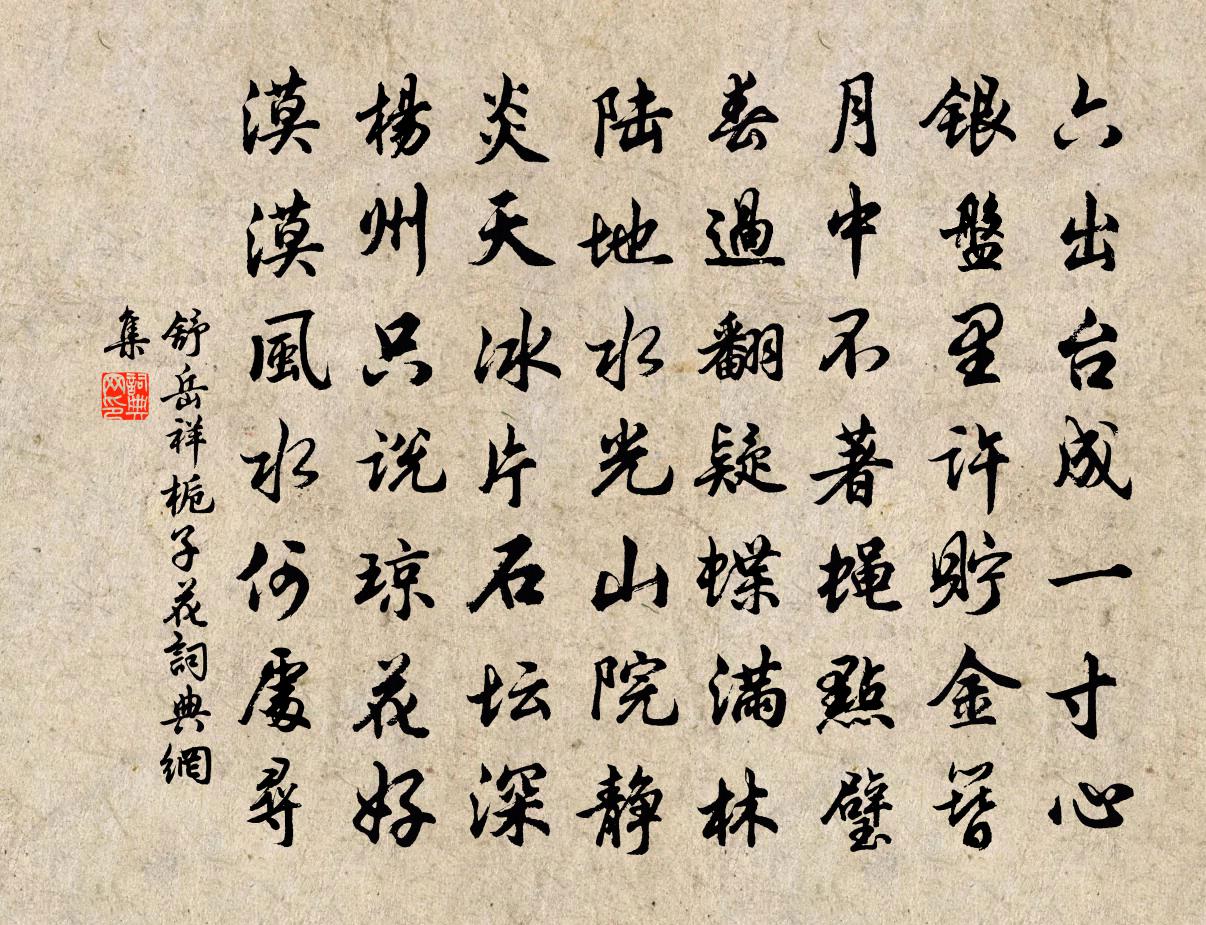 六出台成一寸心
銀盤里許貯金簪
月中不著蝇點璧
春過翻疑蝶满林
陆地水光山院静
炎天冰片石坛深
楊州只说琼花好
漠漠風水何處尋
舒岳祥栀子花詞典網
集
詞典网印